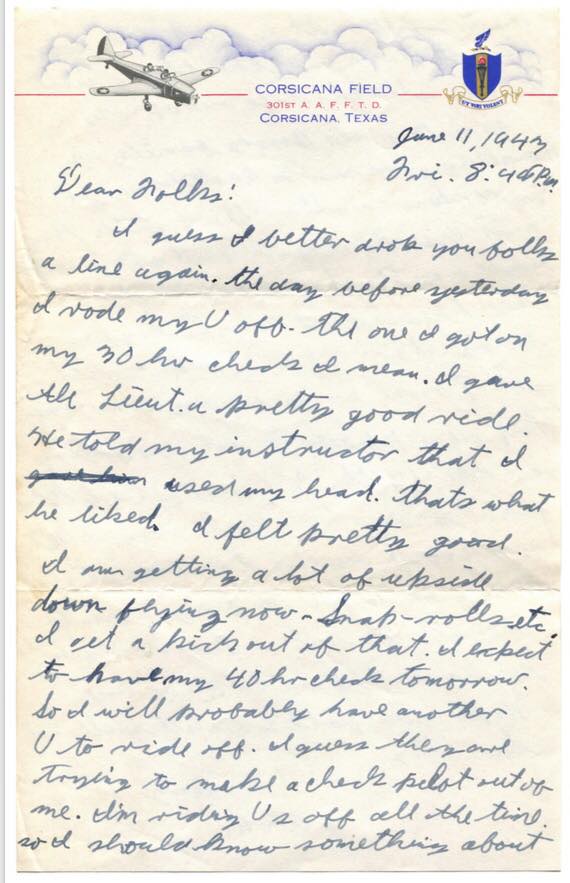 CORSICANA FIELD
301ST A. A. F. F. T. D.
CORSICANA, TEXAS
UT VIRI VOLENT
June 11, 1943
Fri. 8:45 P.m.
Dear Folks:
I guess I better drop you folks
a line again. the day before yesterday
I rode my U off. The one I got on
my 30 hr check I mean. I gave
the Lieut. a pretty good ride.
He told my instructor that I
gave him used my head. thats what
he liked. I felt pretty good.
I am getting a lot of upside
down flying now - Snap-rolls, etc.
I get a kick out of that. I expect
to have my 40 hr check tomorrow.
So I will probably have another
U to ride off. I guess they are
trying to make a check pilot out of
me. I'm riding Us off all the time.
so I should know something about